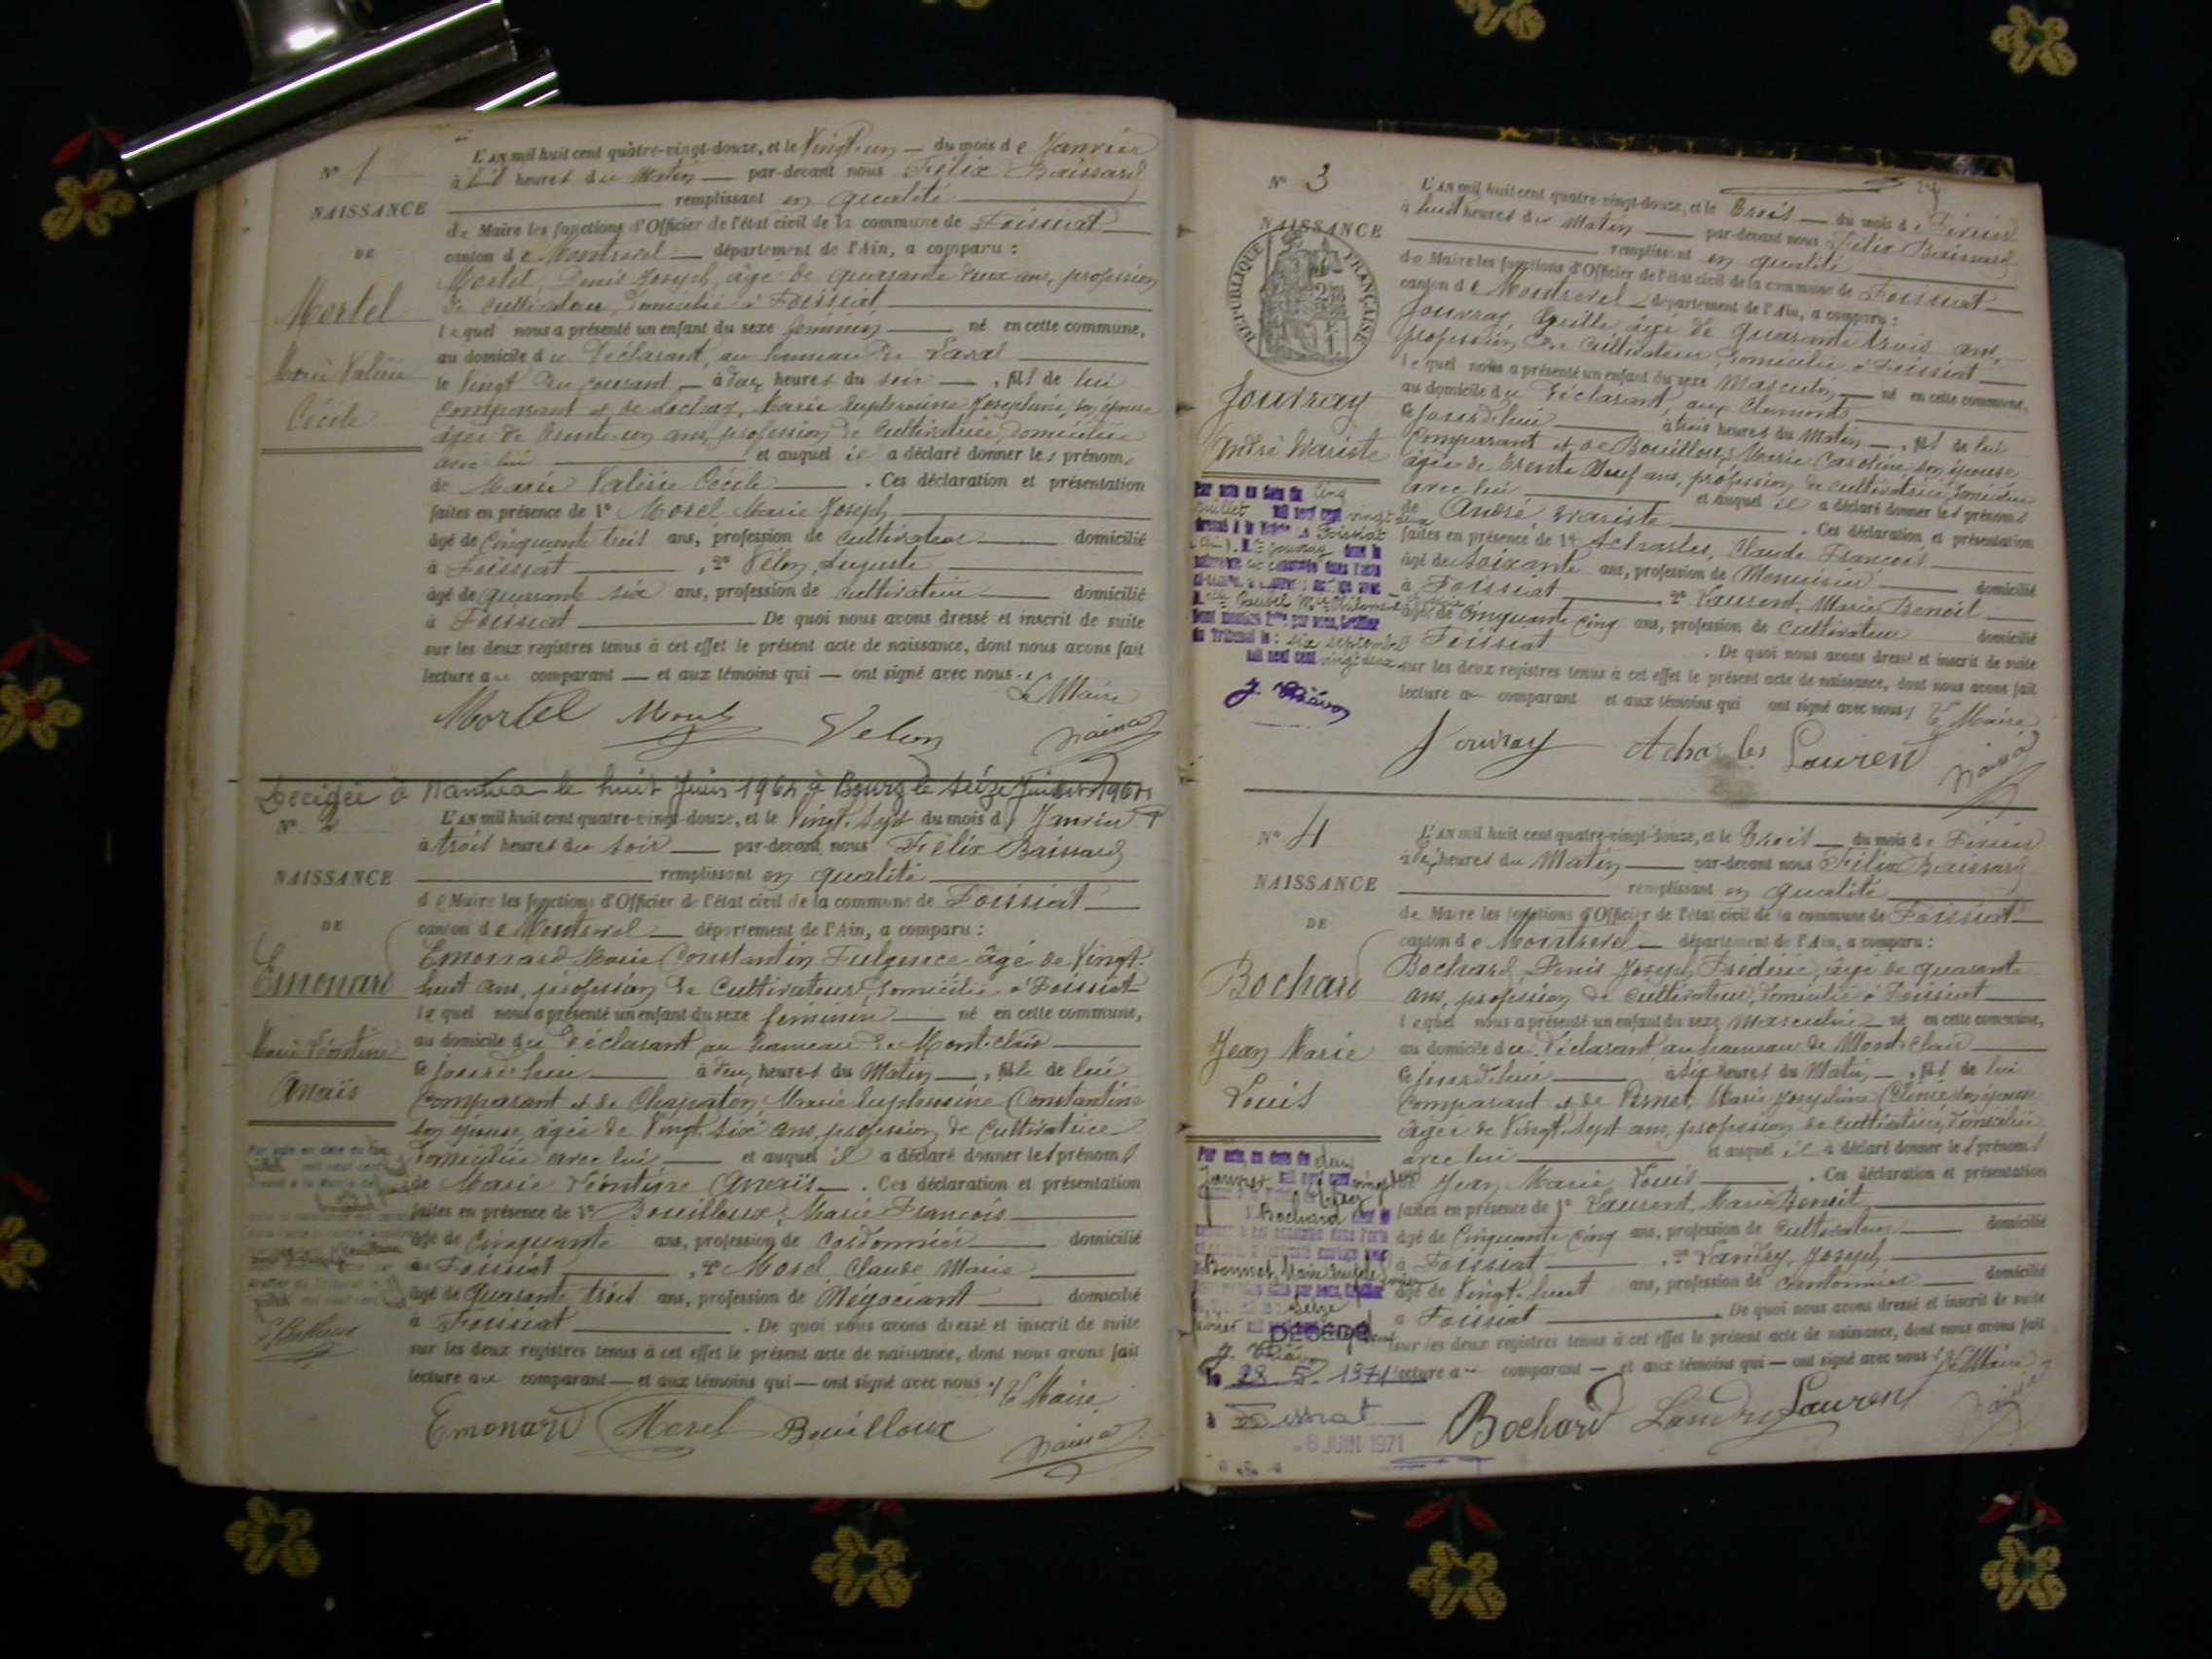 N° 1
NAISSANCE
DE
Mortel
Marie Valérie
Cécile
L'AN mil huit cent quatre-vingt-douze, et le Vingt-un du mois de Janvier
à heures du Matin par-devant nous Félix Baissard
remplissant en qualité
de Maire les fonctions d'Officier de l'état civil de la commune de Foissiat
canton de Montrevel département de l'Ain, a comparu :
Mortel, Denis Joseph, âgé de quarante deux ans, profession
de cultivateur, domicilié à Foissiat
lequel nous a présenté un enfant du sexe féminin né en cette commune,
au domicile du Déclarant, au hameau de Laval
le Vingt du courant à heures du soir , fil de lui
comparant et de Marie Euphrosine Joséphine, son épouse
âgée de trente-un ans, profession de cultivatrice, domiciliée
avec lui et auquel il a déclaré donner les prénoms
de Marie Valérie Cécile . Ces déclaration et présentation
faites en présence de 1° Morel Marie Joseph
âgé de Cinquante trois ans, profession de cultivateur domicilié
à Foissiat , 2° Velon, Auguste
âgé de quarante six ans, profession de cultivateur domicilié
à Foissiat De quoi nous avons dressé et inscrit de suite
sur les deux registres tenus à cet effet le présent acte de naissance, dont nous avons fait
lecture au comparant et aux témoins qui ont signé avec nous
Le Maire
Mortel Morel Velon
Décédée à Nantua le huit Juin 1964 à Bourg le seize Juin 1964
N° 2
NAISSANCE
DE
Emonard
Marie Léontine
Anaïs
L'AN mil huit cent quatre-vingt-douze, et le Vingt-sept du mois de Janvier
à trois heures du soir par-devant nous Félix Baissard
remplissant en qualité
de Maire les fonctions d'Officier de l'état civil de la commune de Foissiat
canton de Montrevel département de l'Ain, a comparu :
Emonard Marie Constantin Fulgence âgé de Vingt-
huit ans, profession de Cultivateur, domicilié à Foissiat
lequel nous a présenté un enfant du sexe féminin né en cette commune,
au domicile du Déclarant au hameau de Mont-clair
ce jourd'hui à deux heures du Matin , fille de lui
comparant et de Chapaton, Marie Euphrosine Constantine
son épouse, âgée de Vingt-six ans, profession de Cultivatrice
domiciliée avec lui et auquel il a déclaré donner les prénoms
de Marie Léontine Anaïs . Ces déclaration et présentation
faites en présence de 1° Bouilloux, Marie François
âgé de Cinquante ans, profession de cordonnier domicilié
à Foissiat , 2° Morel Claude Marie
âgé de quarante trois ans, profession de Négociant domicilié
à Foissiat . De quoi nous avons dressé et inscrit de suite
sur les deux registres tenus à cet effet le présent acte de naissance, dont nous avons fait
lecture au comparant et aux témoins qui ont signé avec nous
Le Maire
Emonard Morel Bouilloux
N° 3
NAISSANCE
RÉPUBLIQUE FRANÇAISE
Jouvray
André Evariste
Par acte en date du cinq
juillet mil neuf cent vingt deux
dressé à la Mairie de Foissiat
mil neuf cent vingt deux
L'AN mil huit cent quatre-vingt-douze, et le trois du mois de Février
à huit heures du Matin par-devant nous Félix Baissard
remplissant en qualité
de Maire les fonctions d'Officier de l'état civil de la commune de Foissiat
canton de Montrevel département de l'Ain, a comparu :
Jouvray, âgé de quarante trois ans,
profession de cultivateur, domicilié à Foissiat
lequel nous a présenté un enfant du sexe Masculin né en cette commune,
au domicile du Déclarant, aux
ce jourd'hui à trois heures du Matin , fils de lui
comparant et de Bouilloux, Marie Caroline, son épouse
âgée de trente neuf ans, profession de cultivatrice domiciliée
avec lui et auquel il a déclaré donner les prénoms
de André, Evariste . Ces déclaration et présentation
faites en présence de 1° Acharles, Claude François
âgé de soixante ans, profession de Menuisier domicilié
à Foissiat , 2° Laurent, Marie Benoit
âgé de Cinquante cinq ans, profession de cultivateur domicilié
à Foissiat . De quoi nous avons dressé et inscrit de suite
sur les deux registres tenus à cet effet le présent acte de naissance, dont nous avons fait
lecture au comparant et aux témoins qui ont signé avec nous
Le Maire
Jouvray Acharles Laurent
N° 4
NAISSANCE
DE
Bochard
Jean Marie
Louis
Par acte en date du deux
Janvier mil neuf cent
Bochard
DÉCÉDÉ
le 28 5 1971
à Foissiat
8 JUIN 1971
L'AN mil huit cent quatre-vingt-douze, et le trois du mois de Février
à dix heures du Matin par-devant nous Félix Baissard
remplissant en qualité
de Maire les fonctions d'Officier de l'état civil de la commune de Foissiat
canton de Montrevel département de l'Ain, a comparu :
Bochard, Denis Joseph, Frédéric, âgé de quarante
ans, profession de cultivateur, domicilié à Foissiat
lequel nous a présenté un enfant du sexe Masculin né en cette commune,
au domicile du Déclarant au hameau de Mont-Clair
ce jourd'hui à six heures du Matin , fils de lui
comparant et de Marie Joséphine Célinie son épouse
âgée de Vingt-sept ans, profession de cultivatrice, domiciliée
avec lui et auquel il a déclaré donner les prénoms
de Jean Marie Louis . Ces déclaration et présentation
faites en présence de 1° Laurent, Marie Benoit
âgé de Cinquante Cinq ans, profession de Cultivateur domicilié
à Foissiat , 2° Landry, Joseph
âgé de Vingt-huit ans, profession de domicilié
à Foissiat De quoi nous avons dressé et inscrit de suite
sur les deux registres tenus à cet effet le présent acte de naissance, dont nous avons fait
lecture au comparant et aux témoins qui ont signé avec nous
Le Maire
Bochard Landry Laurent